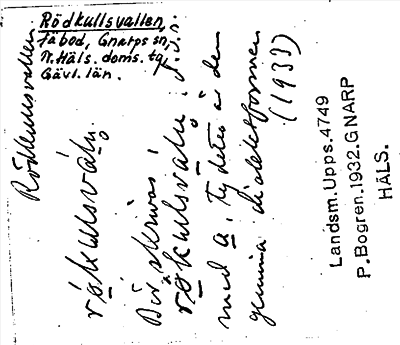 Rödkullsvallen,
fäbod, Gnarps sn,
N.Häls. doms. tg
Gävl. län.
Rödkullsvallen
rókulsváln.
Bör skrivas
rókulsváln
med a, ty detta är den
genuina dialektformen
(1933)
Landsm.Upps.4749
P.Bogren.1932.GNARP
HÄLS.